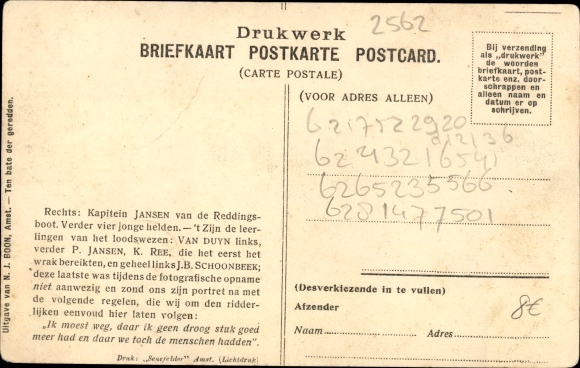 Drukwerk
2562
BRIEFKAART POSTKARTE POSTCARD.
(CARTE POSTALE)
Bij verzending
als „drukwerk"
de woorden
briefkaart, post-
karte enz. door-
schrappen en
alleen naam en
datum er op
schrijven.
(VOOR ADRES ALLEEN)
6217522920
6265235566
6281477501
Uitgave van N. J. BOON, Amst. — Ten bate der geredden.
Rechts: Kapitein JANSEN van de Reddings-
boot. Verder vier jonge helden. — 't Zijn de leer-
lingen van het loodswezen: VAN DUYN links,
verder P. JANSEN, K. REE, die het eerst het
wrak bereikten, en geheel links J.B. SCHOONBEEK;
deze laatste was tijdens de fotografische opname
niet aanwezig en zond ons zijn portret na met
de volgende regelen, die wij om den ridder-
lijken eenvoud hier laten volgen:
„Ik moest weg, daar ik geen droog stuk goed
meer had en daar we toch de menschen hadden".
Druk: „Senefelder" Amst. (Lichtdruk)
(Desverkiezende in te vullen)
Afzender
8€
Naam
Adres